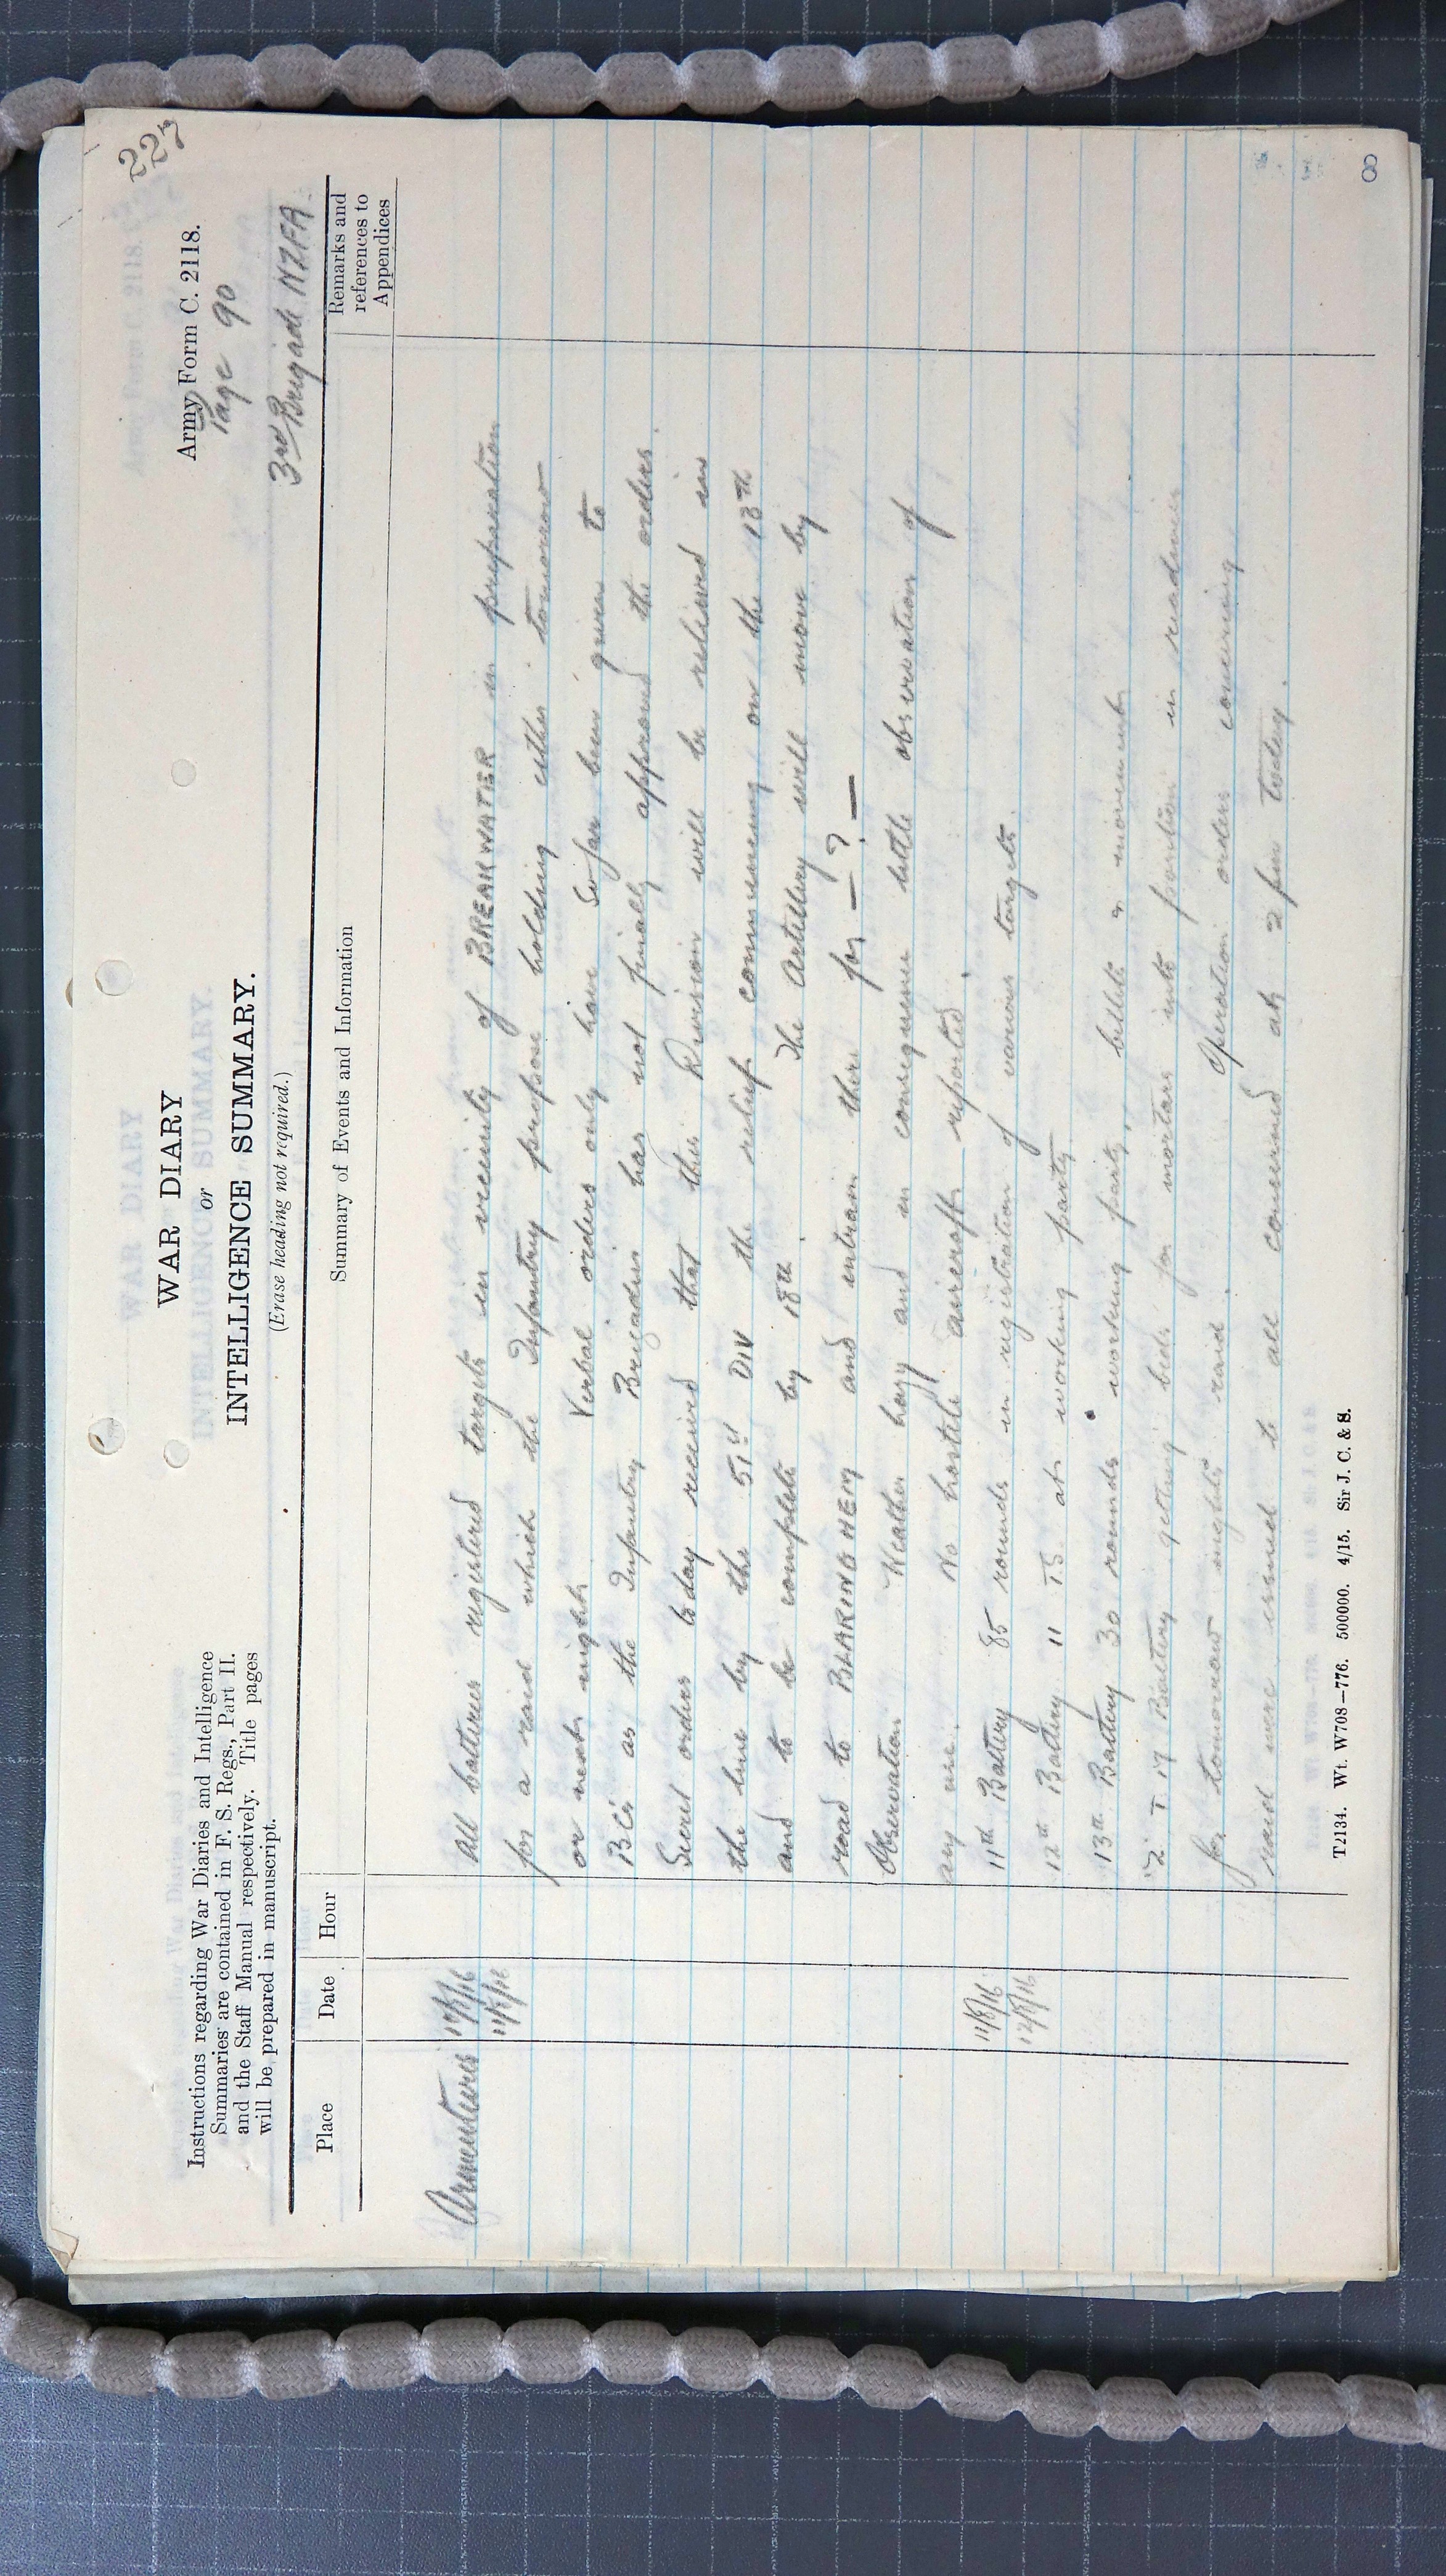 227
Army Form C. 2118.
Page 90
3rd Brigade NZFA.
WAR DIARY
or
INTELLIGENCE SUMMARY.
(Erase heading not required.)
Instructions regarding War Diaries and Intelligence
Summaries are contained in F. S. Regs., Part II.
and the Staff Manual respectively. Title pages
will be prepared in manuscript.
Place Date Hour Summary of Events and Information Remarks and references to Appendices
Armentieres All batteries registered targets in vicinity of BREAKWATER in preparation
11/8/16 for a raid which the Infantry propose holding either tomorrow
or next night. Verbal orders only have so far been given to
BCs as the Infantry Brigadier has not finally approved the orders.
Secret orders today received that this Division will be relieved in
the line by the 51st DIV the relief commencing on the 13th
and to be complete by 18th. The Artillery will move by
road to BLARINGHEM and entrain there for — ? —
Observation Weather hazy and in consequence little observation of
any use. No hostile aircraft reported.
11/8/16 11th Battery 85 rounds in registration of various targets.
12/8/16 12th Battery 11 TS at working party
13th Battery 30 rounds working party, billets & movements
2" T.M Battery getting beds for mortars into position in readiness
for tomorrow nights raid. Operation orders covering
raid were issued to all concerned at 2 pm today.
T2134. Wt. W708—776. 500000. 4/15. Sir J. C. & S.
8